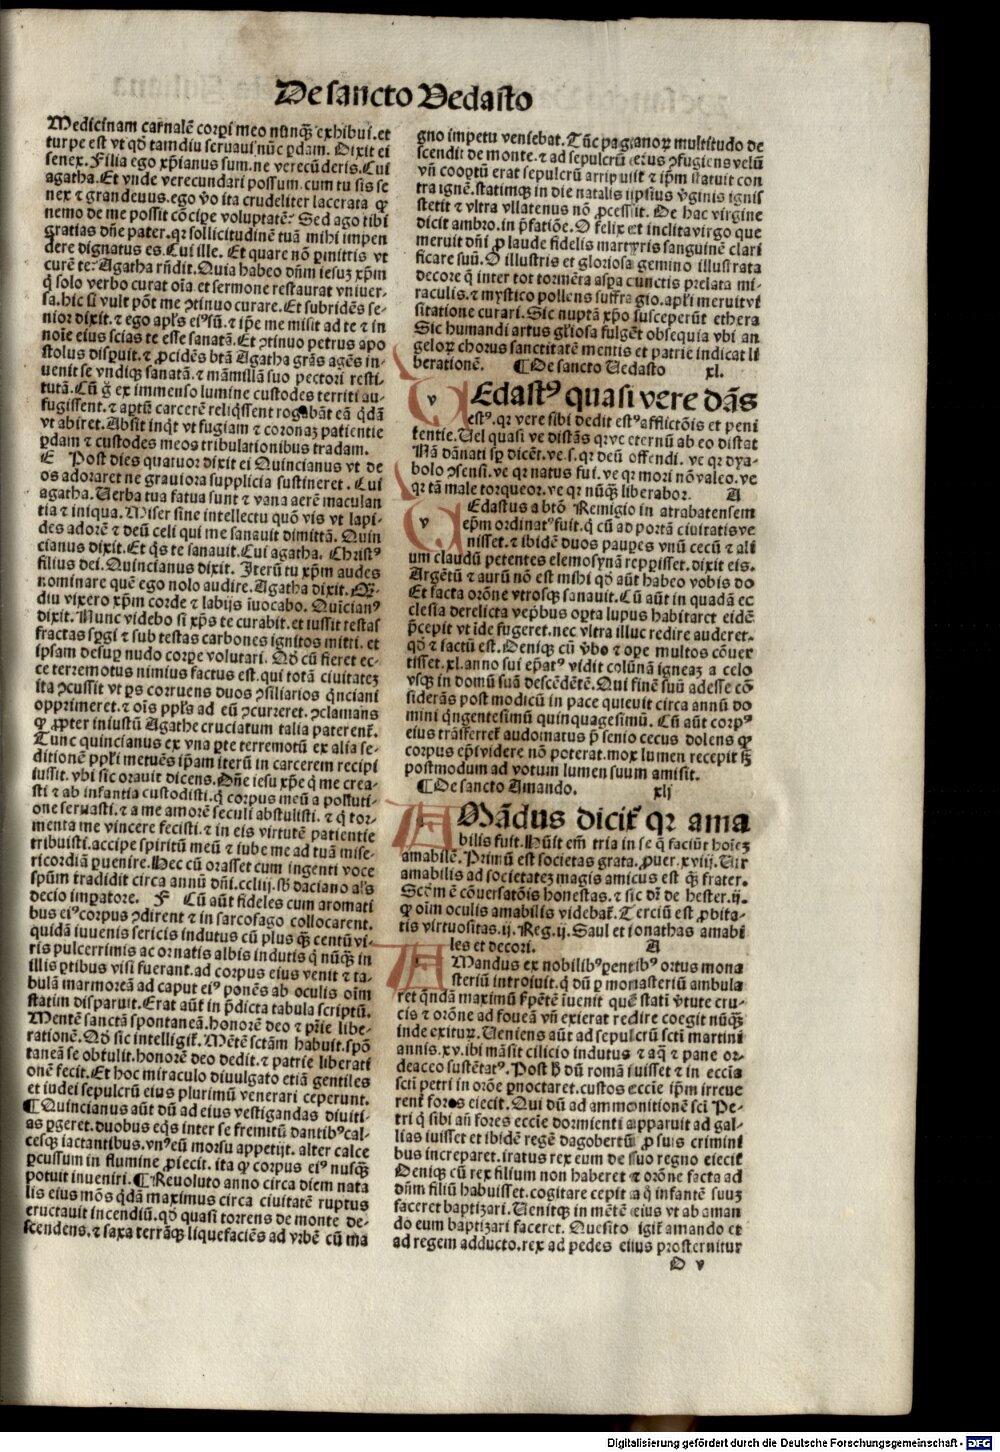 De sancto Vedasto
Medicinam carnalē corꝑi meo nunq̄ exhibui.et
turpe est vt qḋ tamdiu seruaui nūc ꝑdam. Dixit ei
senex. Filia ego xp̄ianus sum.ne verecūderis. Cui
agatha. Et vnde verecundari possum cum tu sis se
nex ⁊ grandeuus.ego v̇o ita crudeliter lacerata ꝙ
nemo de me possit cōcipe voluptatē: Sed ago tibi
gratias dn̄e pater.qꝛ sollicitudinē tuā mihi impen
dere dignatus es. Cui ille. Et quare nō ꝑmittis vt
curē te: Agatha rn̄dit. Quia habeo dn̄m iesuꝫ xp̄m
q̇ solo verbo curat oīa et sermone restaurat vniuer
sa.hic si vult pōt me ꝯtinuo curare. Et subridēs se-
nior dixit. ⁊ ego apl̄s eiꝰ sū. ⁊ ip̄e me misit ad te ⁊ in
noīe eius scias te esse sanatā. Et ꝯtinuo petrus apo
stolus dispuit. ⁊ ꝓcidēs btā Agatha grās agēs in-
uenit se vndiqꝫ sanatā. ⁊ māmillā suo pectori resti-
tutā. Cū g̊ ex immenso lumine custodes territi au-
fugissent. ⁊ aꝑtū carcerē reliq̇ssent rogabāt eā q̇dā
vt abiret. Absit inqt vt fugiam ⁊ coronaꝫ patientie
ꝑdam ⁊ custodes meos tribulationibus tradam.
E Post dies quatuor dixit ei Quincianus vt de
os adoraret ne grauiora supplicia sustineret. Cui
agatha. Verba tua fatua sunt ⁊ vana aerē maculan
tia ⁊ iniqua. Miser sine intellectu quō vis vt lapi-
des adorē ⁊ deū celi qui me sanauit dimittā. Quin
cianus dixit. Et q̇s te sanauit. Cui agatha. Christꝰ
filius dei. Quincianus dixit. Iterū tu xp̄m audes
nominare quē ego nolo audire. Agatha dixit. Q̄-
diu vixero xp̄m corde ⁊ labijs īuocabo. Quīcianꝰ
dixit. Nunc videbo si xp̄s te curabit.et iussit testas
fractas sꝑgi ⁊ sub testas carbones ignitos mitti. et
ipsam desuꝑ nudo corpe volutari. Qḋ cū fieret ec-
ce terremotus nimius factus est.qui totā ciuitateꝫ
ita ꝯcussit vt ꝑs corruens duos ꝯsiliarios q̇nciani
opprimeret. ⁊ oīs ppl̄s ad eū ꝯcurreret. ꝯclamans
ꝙ ꝓpter iniustū Agathe cruciatum talia paterent̄.
Tunc quincianus ex vna ꝑte terremotū ex alia se-
ditionē ppl̄i metuēs ip̄am iterū in carcerem recipi
iussit. vbi sic orauit dicens. Dn̄e iesu xp̄e q̇ me crea-
sti ⁊ ab infantia custodisti. q̇ corpus meū a polluti-
one seruasti. ⁊ a me amorē seculi abstulisti. ⁊ q̇ tor-
menta me vincere fecisti. ⁊ in eis virtutē patientie
tribuisti. accipe spiritū meū ⁊ iube me ad tuā mise-
ricordiā ꝑuenire. Hec cū orasset cum ingenti voce
spūm tradidit circa annū dn̄i.ccliij. sb̄ daciano al̄s
decio imꝑatore. F Cū aūt fideles cum aromati
bus eiꝰ corpus ꝯdirent ⁊ in sarcofago collocarent.
quidā iuuenis sericis indutus cū plus q̄ꝫ centū vi-
ris pulcerrimis ac ornatis albis indutis q̇ nūq̄ꝫ in
illis ꝑtibus visi fuerant.ad corpus eius venit ⁊ ta-
bulā marmoreā ad caput eiꝰ ponēs ab oculis oīm
statim disparuit. Erat aūt in p̄dicta tabula scriptū.
Mentē sanctā spontaneā. honorē deo ⁊ pr̄ie libe-
rationē. Qḋ sic intelligit̄. Mētē sctām habuit.spō
taneā se obtulit.honorē deo dedit. ⁊ patrie liberati
onē fecit. Et hoc miraculo diuulgato etiā gentiles
et iudei sepulcrū eius plurimū venerari ceperunt.
¶Quincianus aūt dū ad eius vestigandas diuiti-
as ꝑgeret. duobus eq̇s inter se fremitū dantibꝰ cal-
cesqꝫ iactantibus.vnꝰ eū morsu appetijt. alter calce
ꝑcussum in flumine ꝓiecit. ita ꝙ corpus eiꝰ nusq̄ꝫ
potuit inueniri. ¶Reuoluto anno circa diem nata
lis eius mōs q̇dā maximus circa ciuitatē ruptus
eructauit incendiū. qḋ quasi torrens de monte de-
scendens. ⁊ saxa terrāqꝫ liquefaciēs ad vrbē cū ma
gno impetu veniebat. Tūc paganoꝝ multitudo de
scendit de monte. ⁊ ad sepulcrū eius ꝯfugiens velū
vn̄ cooꝑtū erat sepulcrū arripuit ⁊ ip̄m statuit con
tra ignē. statimqꝫ in die natalis ipsiꝰ v̇ginis ignis
stetit ⁊ vltra vllatenus nō ꝓcessit. De hac virgine
dicit ambro. in p̄fatiōe. O felix et inclita virgo que
meruit dn̄i ꝓ laude fidelis martyris sanguinē clari
ficare suū. O illustris et gloriosa gemino illustrata
decore q̄ inter tot tormēta aspa cunctis prelata mi-
raculis. ⁊ mystico pollens suffragio. apl̄i meruit vi
sitatione curari. Sic nuptā xp̄o susceperūt ethera
Sic humandi artus gl̄iosa fulgēt obsequia vbi an
geloꝝ chorus sanctitatē mentis et patrie indicat li
berationē. ¶De sancto Vedasto xl.
v Edastꝰ quasi vere dās
estꝰ. qꝛ vere sibi dedit estꝰ afflictōis et peni
tentie. Vel quasi ve distās qꝛ ve eternū ab eo distat
Nā dānati sꝑ dicēt. ve.s. qꝛ deū offendi. ve qꝛ dya-
bolo ꝯsensi. ve qꝛ natus fui. ve qꝛ mori nō valeo. ve
qꝛ tā male torqueor. ve qꝛ nūq̄ꝫ liberabor. A
v Edastus a btō Remigio in atrabatensem
ep̄m ordinatꝰ fuit. q̇ cū ad portā ciuitatis ve
nisset. ⁊ ibidē duos pauꝑes vnū cecū ⁊ ali
um claudū petentes elemosynā reꝑisset. dixit eis.
Argētū ⁊ aurū nō est mihi qḋ aūt habeo vobis do
Et facta orōne vtrosqꝫ sanauit. Cū aūt in quadā ec
clesia derelicta vepribus oꝑta lupus habitaret eidē
p̄cepit vt īde fugeret. nec vltra illuc redire auderet.
qḋ ⁊ factū est. Deniqꝫ cū v̇bo ⁊ oꝑe multos cōuer
tisset. xl. anno sui ep̄atꝰ vidit colūnā igneaꝫ a celo
vsqꝫ in domū suā descēdētē. Qui finē suū adesse cō
siderās post modicū in pace quieuit circa annū do
mini q̇ngentesimū quinquagesimū. Cū aūt corpꝰ
eius trāsferret̄ audomatus p̄ senio cecus dolens ꝙ
corpus ep̄i videre nō poterat. mox lumen recepit sꝫ
postmodum ad votum lumen suum amisit.
¶De sancto Amando. xlj
A Māndus dicit̄ qꝛ ama
bilis fuit. Hūit em̄ tria in se q̄ faciūt hoīeꝫ
amabilē. Primū est societas grata. ꝓuer. xviij. Vir
amabilis ad societateꝫ magis amicus est q̄ꝫ frater.
Scḋm ē cōuersatōis honestas. ⁊ sic dr̄ de hester. ij.
ꝙ oīm oculis amabilis videbat̄. Terciū est ꝓbita-
tis virtuositas. ij. Reg. ij. Saul et ionathas amabi
les et decori. A
A Mandus ex nobilibꝰ parentibꝰ ortus mona
steriū introiuit. q̇ dū ꝑ monasteriū ambula
ret q̇ndā maximū serpētē iuenit quē statī v̇tute cru-
cis ⁊ orōne ad foueā vn̄ exierat redire coegit nūq̄ꝫ
inde exiturꝫ. Veniens aūt ad sepulcrū scti martini
annis. xv. ibi māsit cilicio indutus ⁊ aq̄ ⁊ pane or-
deaceo sustētatꝰ. Post h̄ dū romā iuisset ⁊ in ecc̄ia
sc̄i petri in orōe ꝑnoctaret. custos ecc̄ie ip̄m irreue
rent̄ fores eiecit. Qui dū ad ammonitionē sc̄i Pe-
tri q̇ sibi an̄ fores ecc̄ie dormienti apparuit ad gal-
lias iuisset et ibidē regē dagobertū ꝓ suis crimini
bus increparet. iratus rex eum de suo regno eiecit
Deniqꝫ cū rex filium non haberet ⁊ orōne facta ad
dn̄m filiū habuisset. cogitare cepit a q̇ infantē suuꝫ
faceret baptizari. Venitqꝫ in mētē eius vt ab aman
do eum baptizari faceret. Quesito igit̄ amando et
ad regem adducto. rex ad pedes eius prosternitur
D v
Digitalisierung gefördert durch die Deutsche Forschungsgemeinschaft - DFG